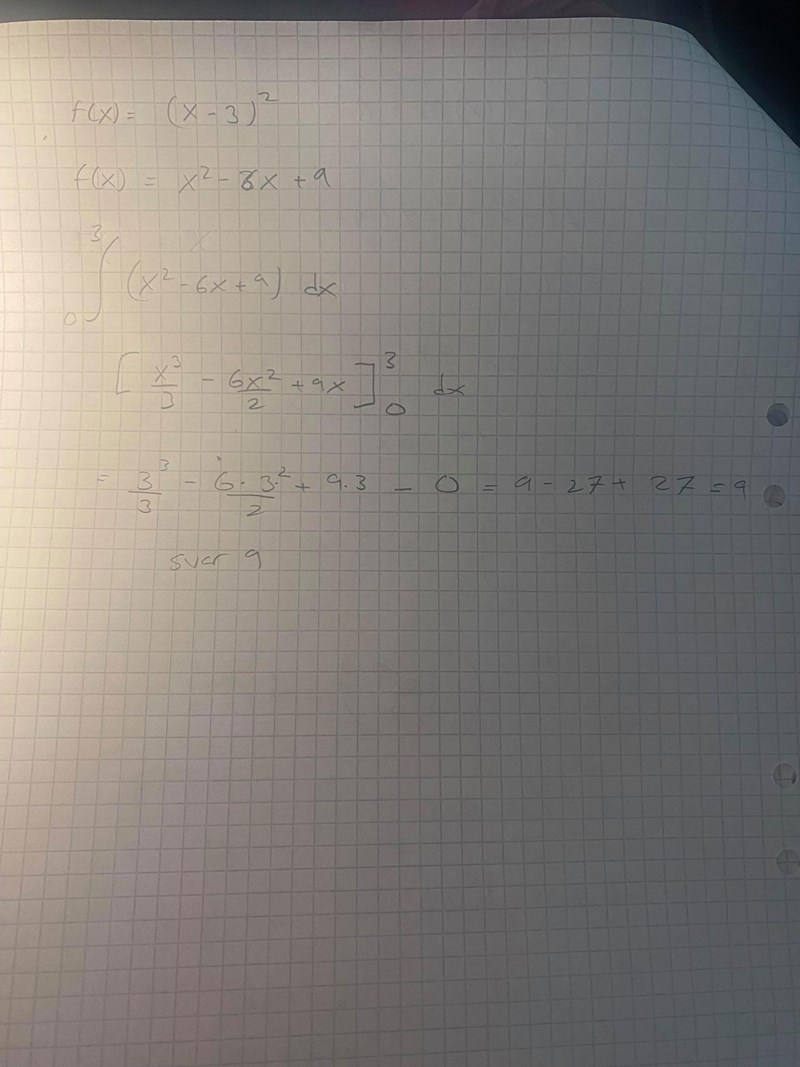 f(x) = (x - 3)²
f(x) = x² - 6x + 9
₀∫³ (x² - 6x + 9) dx
[x³/3 - 6x²/2 + 9x]₀³ dx
= 3³/3 - 6·3²/2 + 9·3 - 0 = 9 - 27 + 27 = 9
svar 9